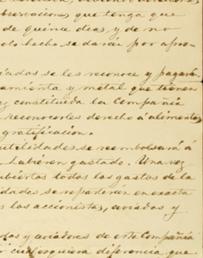 observaciones que tenga que
de quince dias, y de no
lo hecho se daran por apro-
se les reconoce y pagarán
y metal que tienen
constituida la Compañia
reconocerles derecho á alimentos,
gratificacion.
utilidades se reembolsará á
hubieren gastado. Una vez
cubiertos todos los gastos de la
se repartirán en exacta
los accionistas, aviados y
y aviadores de esta Compañia
cualesquiera diferencia que